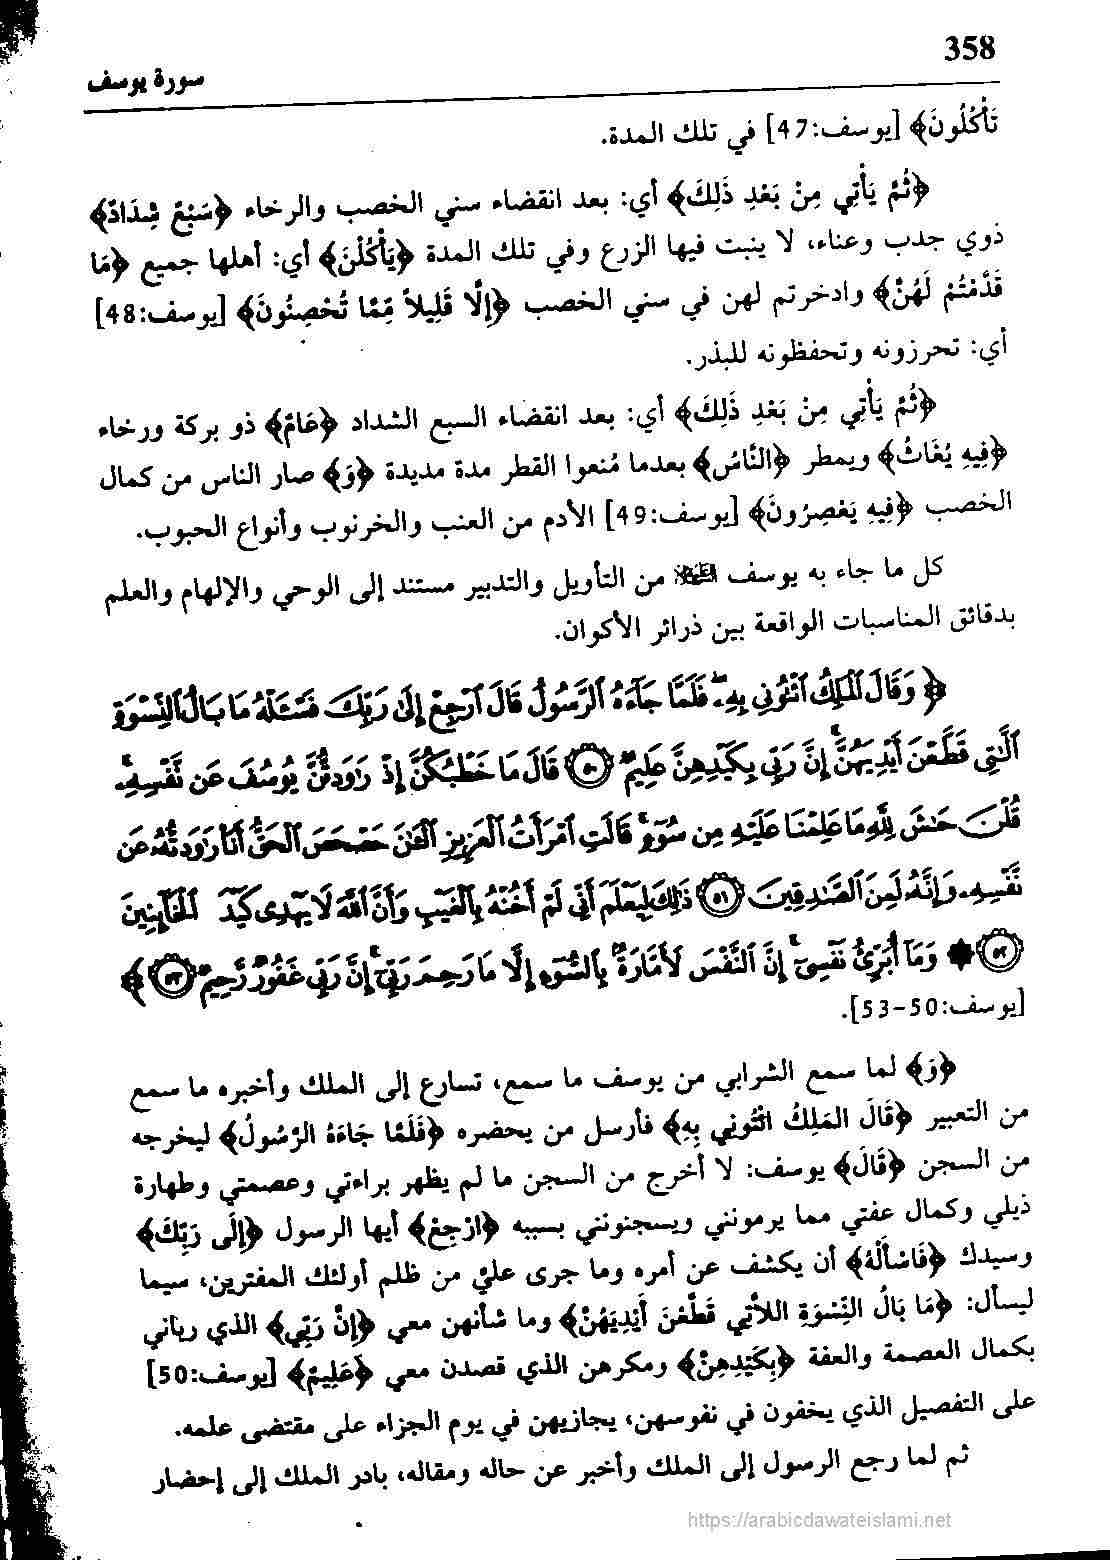 358
سورة يوسف
تَأْكُلُونَ﴾ [يوسف:47] في تلك المدة.
﴿ثُمَّ يَأْتِي مِنْ بَعْدِ ذَلِكَ﴾ أي: بعد انقضاء سني الخصب والرخاء ﴿سَبْعٌ شِدَادٌ﴾
ذوي جدب وعناء، لا ينبت فيها الزرع وفي تلك المدة ﴿يَأْكُلْنَ﴾ أي: أهلها جميع ﴿مَا
قَدَّمْتُمْ لَهُنَّ﴾ وادخرتم لهن في سني الخصب ﴿إِلَّا قَلِيلاً مِّمَّا تُحْصِنُونَ﴾ [يوسف:48]
أي: تحرزونه وتحفظونه للبذر.
﴿ثُمَّ يَأْتِي مِنْ بَعْدِ ذَلِكَ﴾ أي: بعد انقضاء السبع الشداد ﴿عَامٌ﴾ ذو بركة ورخاء
﴿فِيهِ يُغَاثُ﴾ ويمطر ﴿النَّاسُ﴾ بعدما مُنعوا القطر مدة مديدة ﴿وَ﴾ صار الناس من كمال
الخصب ﴿فِيهِ يَعْصِرُونَ﴾ [يوسف:49] الأدم من العنب والخرنوب وأنواع الحبوب.
كل ما جاء به يوسف عليه السلام من التأويل والتدبير مستند إلى الوحي والإلهام والعلم
بدقائق المناسبات الواقعة بين ذرائر الأكوان.
﴿ وَقَالَ ٱلْمَلِكُ ٱئْتُونِى بِهِۦ ۖ فَلَمَّا جَآءَهُ ٱلرَّسُولُ قَالَ ٱرْجِعْ إِلَىٰ رَبِّكَ فَسْـَٔلْهُ مَا بَالُ ٱلنِّسْوَةِ
ٱلَّـٰتِى قَطَّعْنَ أَيْدِيَهُنَّ ۚ إِنَّ رَبِّى بِكَيْدِهِنَّ عَلِيمٌ ۝٥٠ قَالَ مَا خَطْبُكُنَّ إِذْ رَٰوَدتُّنَّ يُوسُفَ عَن نَّفْسِهِۦ ۚ
قُلْنَ حَـٰشَ لِلَّهِ مَا عَلِمْنَا عَلَيْهِ مِن سُوٓءٍ ۚ قَالَتِ ٱمْرَأَتُ ٱلْعَزِيزِ ٱلْـَٔـٰنَ حَصْحَصَ ٱلْحَقُّ أَنَا۠ رَٰوَدتُّهُۥ عَن
نَّفْسِهِۦ وَإِنَّهُۥ لَمِنَ ٱلصَّـٰدِقِينَ ۝٥١ ذَٰلِكَ لِيَعْلَمَ أَنِّى لَمْ أَخُنْهُ بِٱلْغَيْبِ وَأَنَّ ٱللَّهَ لَا يَهْدِى كَيْدَ ٱلْخَآئِنِينَ
۝٥٢ ۞ وَمَآ أُبَرِّئُ نَفْسِىٓ ۚ إِنَّ ٱلنَّفْسَ لَأَمَّارَةٌۢ بِٱلسُّوٓءِ إِلَّا مَا رَحِمَ رَبِّىٓ ۚ إِنَّ رَبِّى غَفُورٌ رَّحِيمٌ ۝٥٣ ﴾
[يوسف:50-53].
﴿وَ﴾ لما سمع الشرابي من يوسف ما سمع، تسارع إلى الملك وأخبره ما سمع
من التعبير ﴿قَالَ المَلِكُ ائْتُونِي بِهِ﴾ فأرسل من يحضره ﴿فَلَمَّا جَاءَهُ الرَّسُولُ﴾ ليخرجه
من السجن ﴿قَالَ﴾ يوسف: لا أخرج من السجن ما لم يظهر براءتي وعصمتي وطهارة
ذيلي وكمال عفتي مما يرمونني ويسجنونني بسببه ﴿ارْجِعْ﴾ أيها الرسول ﴿إِلَى رَبِّكَ﴾
وسيدك ﴿فَاسْأَلْهُ﴾ أن يكشف عن أمره وما جرى عليَّ من ظلم أولئك المفترين، سيما
ليسأل: ﴿مَا بَالُ النِّسْوَةِ اللاَّتِي قَطَّعْنَ أَيْدِيَهُنَّ﴾ وما شأنهن معي ﴿إِنَّ رَبِّي﴾ الذي رباني
بكمال العصمة والعفة ﴿بِكَيْدِهِنَّ﴾ ومكرهن الذي قصدن معي ﴿عَلِيمٌ﴾ [يوسف:50]
على التفصيل الذي يخفون في نفوسهن، يجازيهن في يوم الجزاء على مقتضى علمه.
ثم لما رجع الرسول إلى الملك وأخبر عن حاله ومقاله، بادر الملك إلى إحضار
https://arabicdawateislami.net